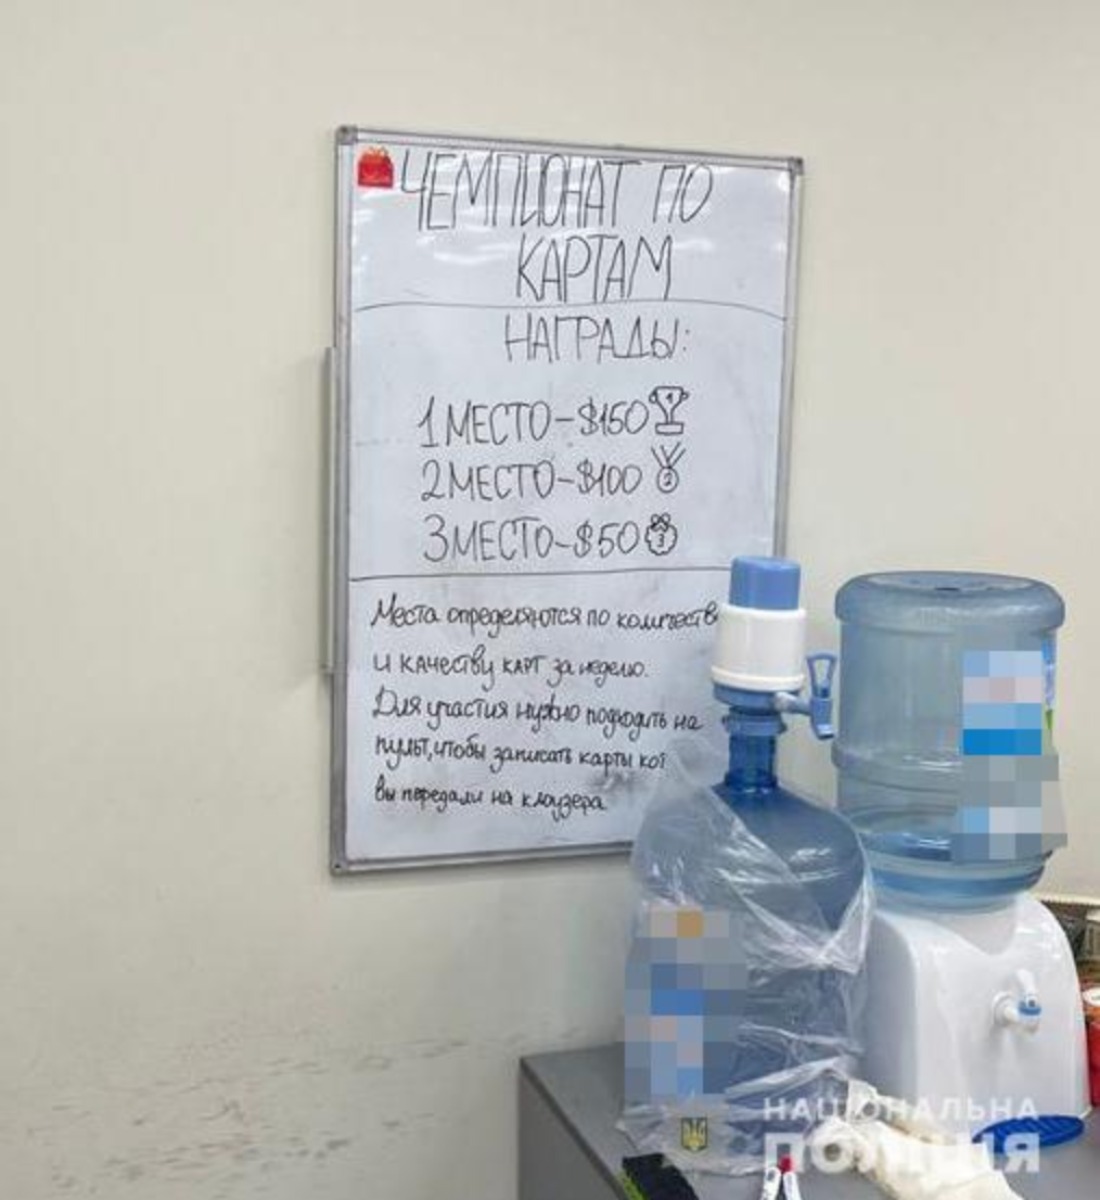 ЧЕМПИОНАТ ПО
КАРТАМ
НАГРАДЫ:
1 МЕСТО-$150 1
2 МЕСТО-$100 2
3 МЕСТО-$50 3
Места определяются по количеств
и качеству карт за неделю.
Для участия нужно подходить на
пульт, чтобы записать карты кот
вы передали на клоузера
НАЦІОНАЛЬНА
ПОЛІЦІЯ